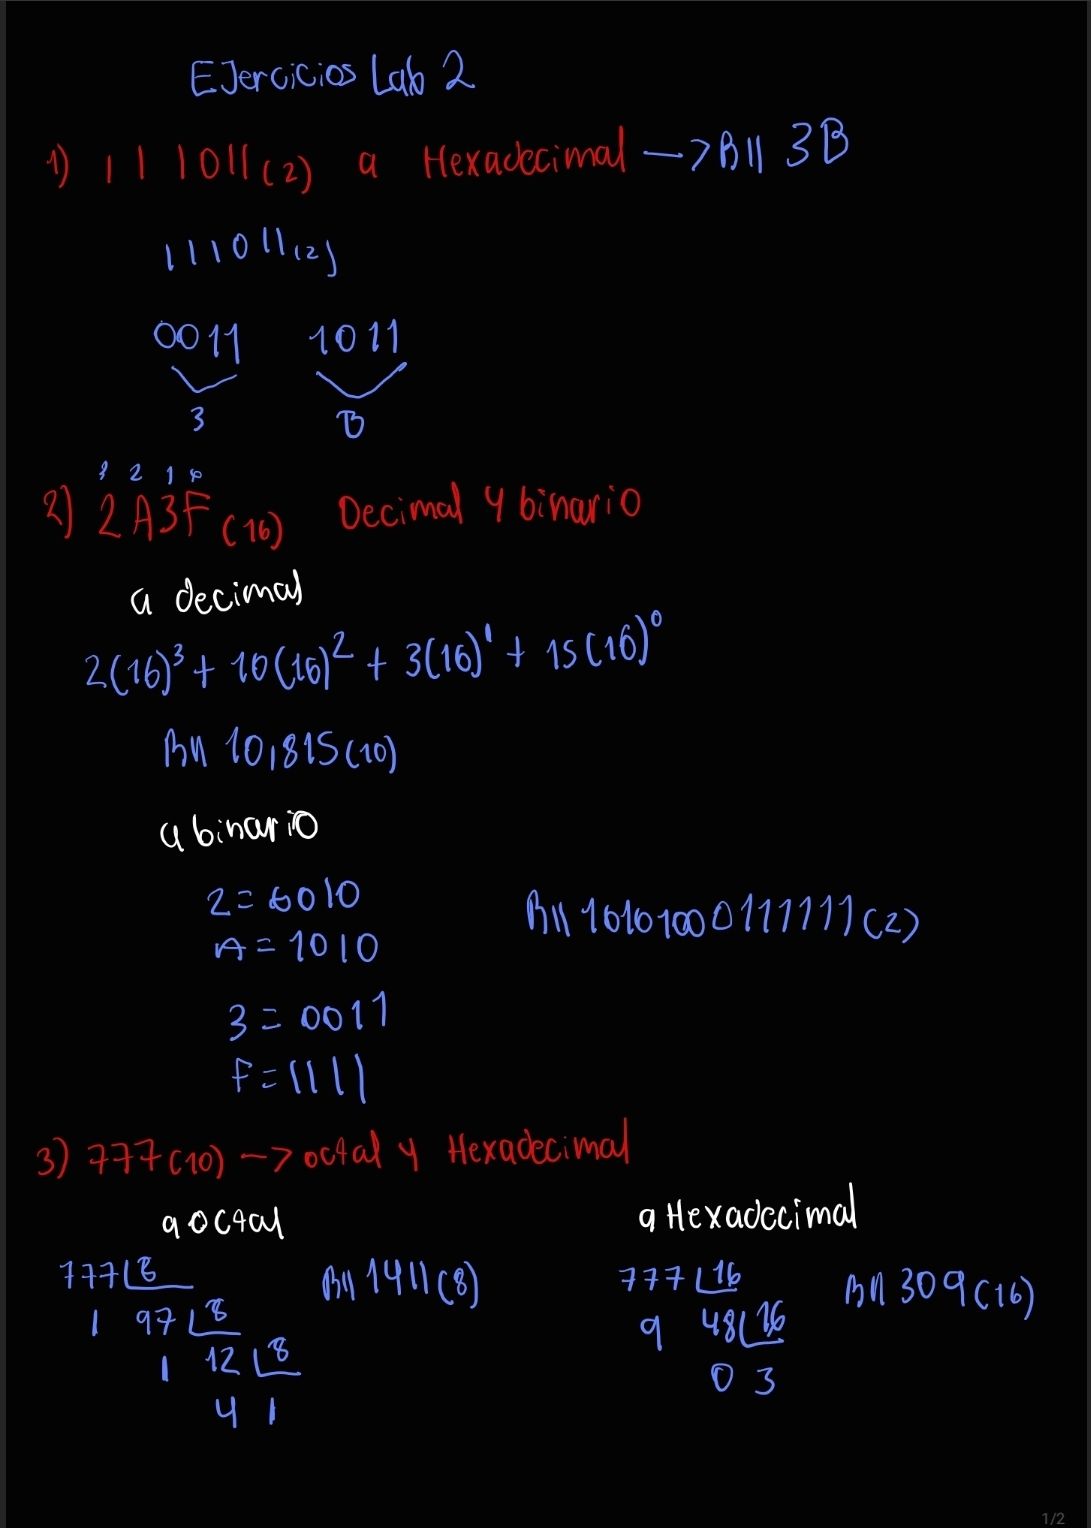 Ejercicios Lab 2
1) 111011(2) a Hexadecimal —> R// 3B
111011(2)
0011 1011
3 B
3 2 1 0
2) 2A3F(16) Decimal y binario
a decimal
2(16)³ + 10(16)² + 3(16)¹ + 15(16)⁰
R// 10,815(10)
a binario
2 = 0010
A = 1010
R// 10101000111111(2)
3 = 0011
F = 1111
3) 777(10) —> octal y Hexadecimal
a octal
a Hexadecimal
777 | 8
1 97 | 8
1 12 | 8
4 1
R// 1411(8)
777 | 16
9 48 | 16
0 3
R// 309(16)
1/2